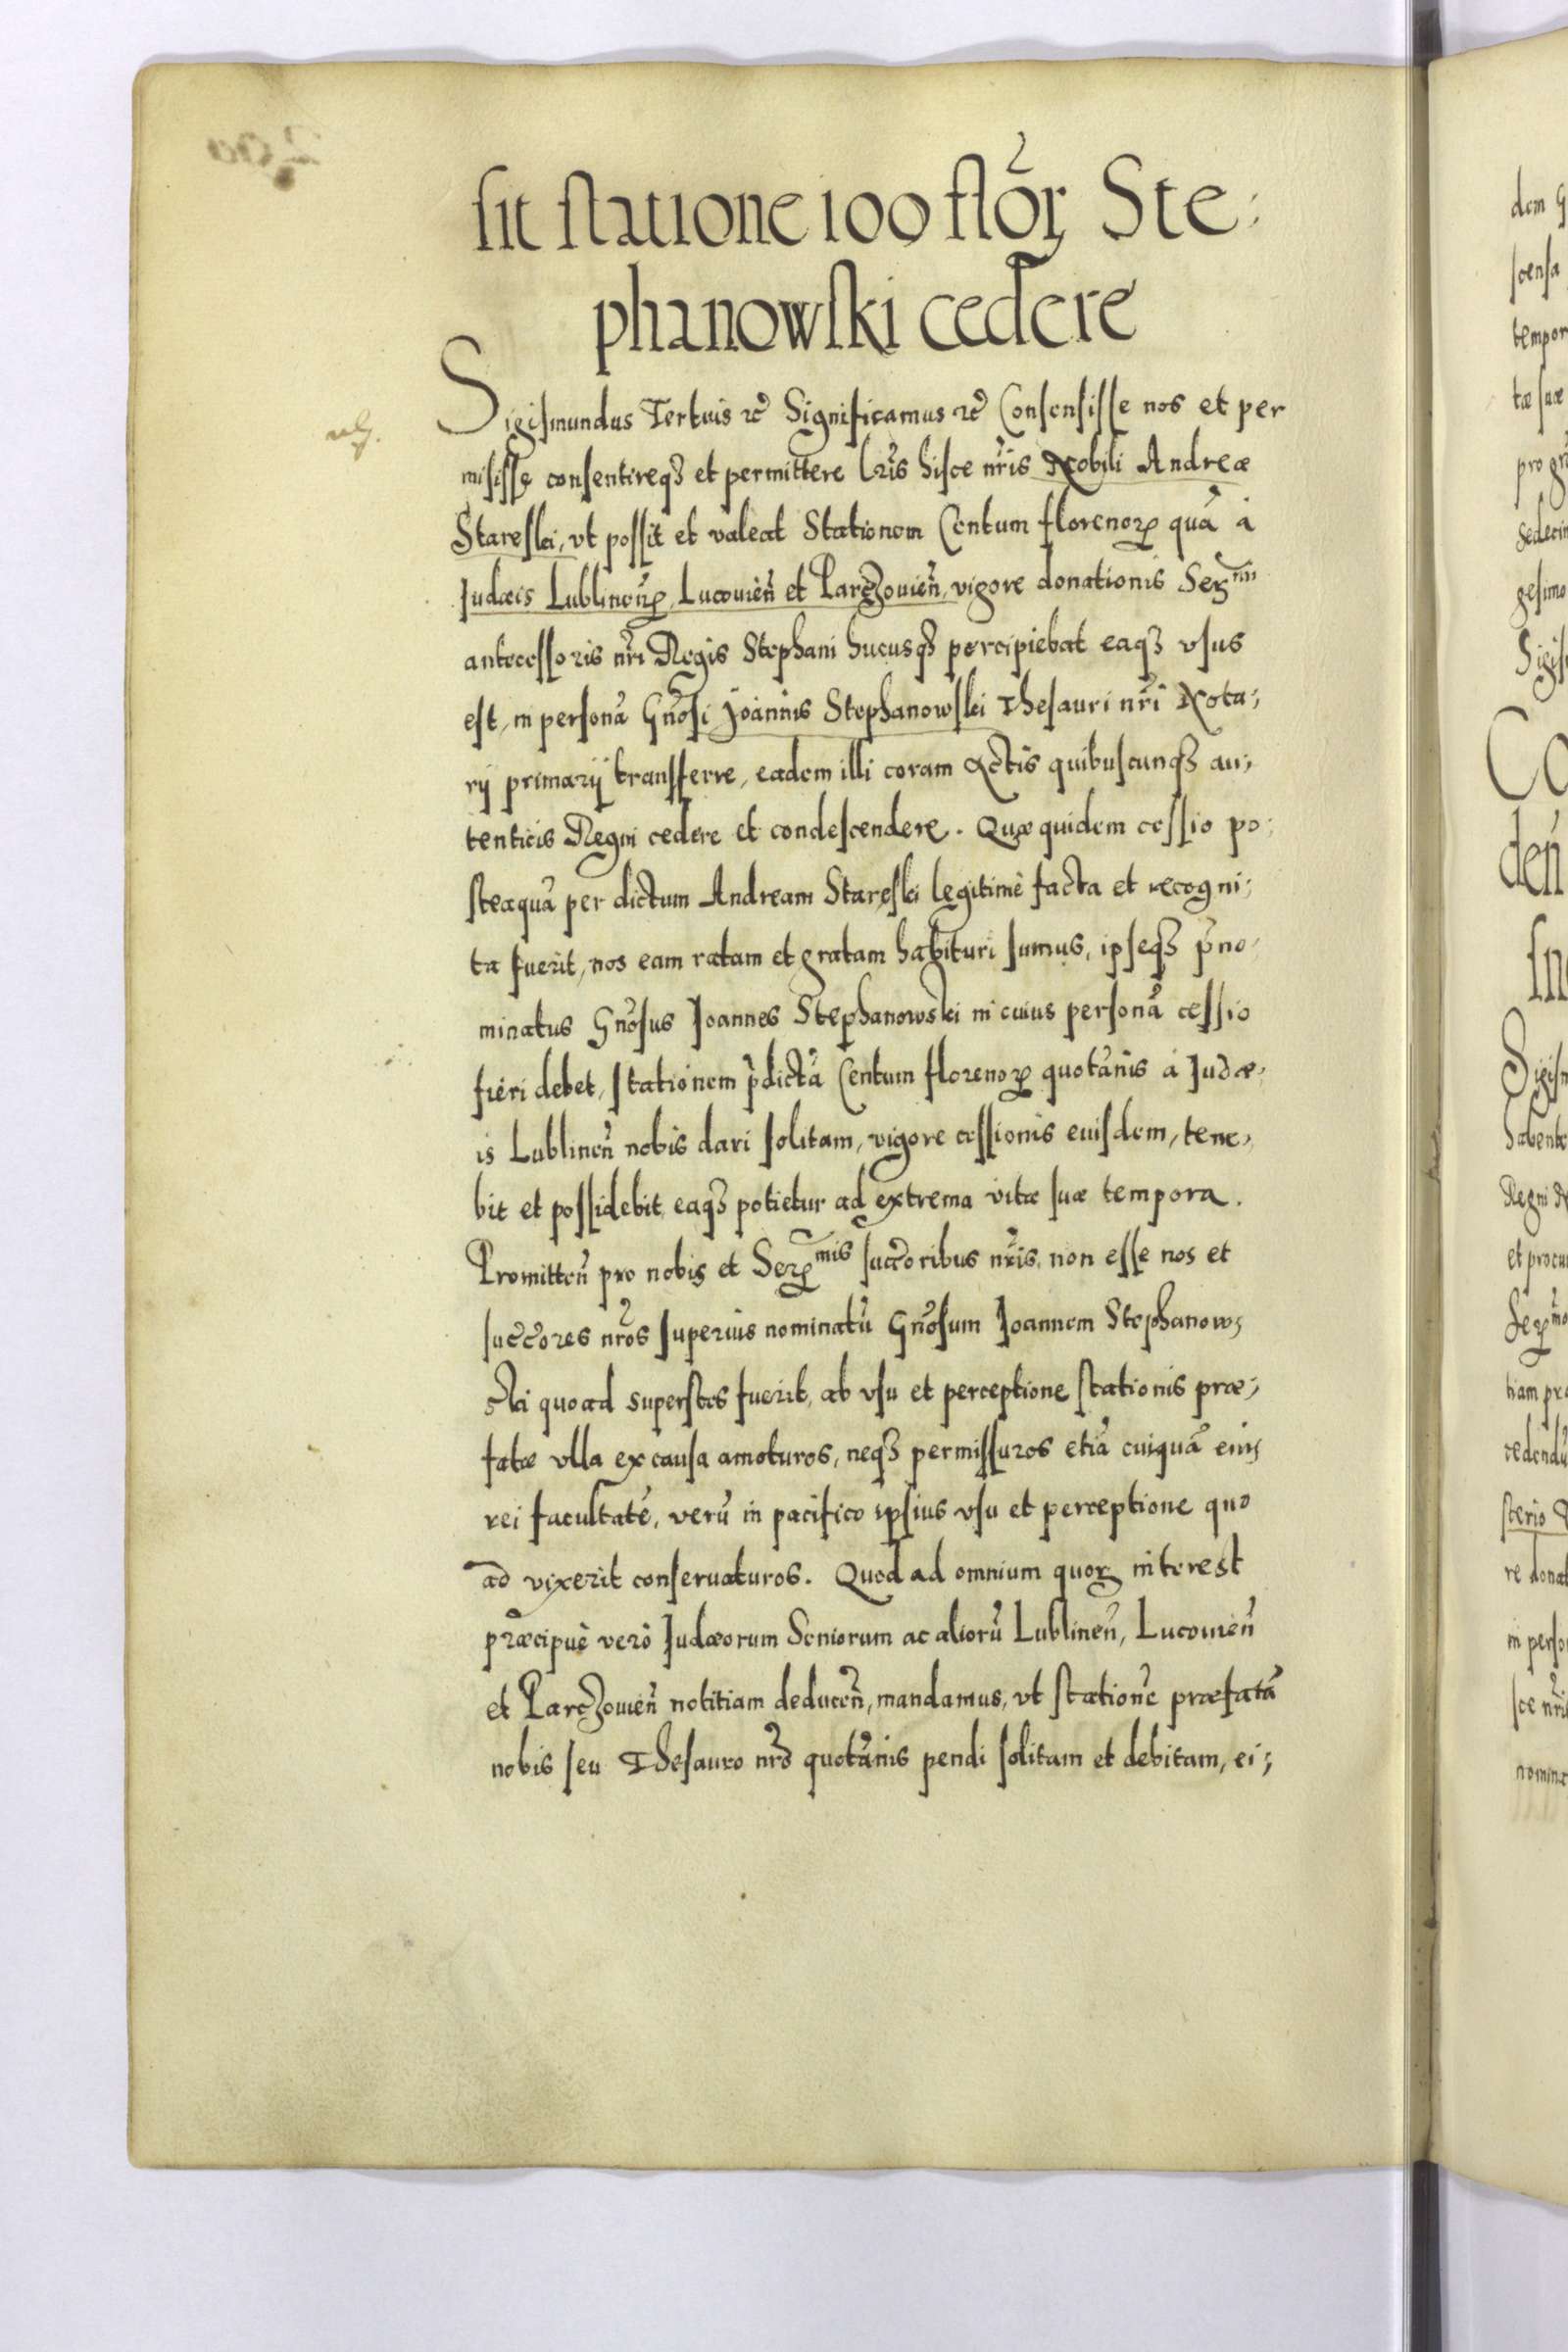 sit statione 100 flor̃ Ste:
phanowski cedere
Sigismundus Tertius etc̃ Significamus etc̃ Consensisse nos et per
misisse consentireqȝ et permittere lr̃is hisce nr̃is Nobili Andreæ
Stareski, vt possit et valeat Stationem Centum florenorꝝ quā à
Judæis Lublinen̄, Lucouien̄ et Parczouien̄, vigore donationis Serᵐⁱ
antecessoris nr̃i Regis Stephani hucusqȝ percipiebat eaqȝ vsus
est, in personā Gnõsi Joannis Stephanowski Thesauri nr̃i Nota;
rij primarij transferre, eadem illi coram Actis quibuscunqȝ au;
tenticis Regni cedere et condescendere. Quæ quidem cessio po;
steaquā per dictum Andream Stareski legitimè facta et recogni;
ta fuerit, nos eam ratam et gratam habituri sumus, ipseqȝ p̄no;
minatus Gnõsus Joannes Stephanowski in cuius personā cessio
fieri debet, stationem p̄dictā Centum florenorꝝ quotānis à Judæ;
is Lublinen̄ nobis dari solitam, vigore cessionis euisdem, tene;
bit et possidebit eaqȝ potietur ad extrema vitæ suæ tempora.
Promitten̄ pro nobis et Serᵐⁱˢ succ̄oribus nr̃is, non esse nos et
succ̄ores nr̃os superius nominatū Gnõsum Joannem Stephanow;
ski quoad superstes fuerit, ab vsu et perceptione stationis præ;
fatæ vlla ex causa amoturos, neqȝ permissuros etiā cuiquā eius
rei facultatē, verū in pacifico ipsius vsu et perceptione quo
ad vixerit conseruaturos. Quod ad omnium quorꝝ interest
præcipuè verò Judæorum Seniorum ac aliorū Lublinen̄, Lucouien̄
et Parczouien̄ notitiam deducen̄, mandamus, vt stationē præfatā
nobis seu Thesauro nr̃o quotānis pendi solitam et debitam, ei;